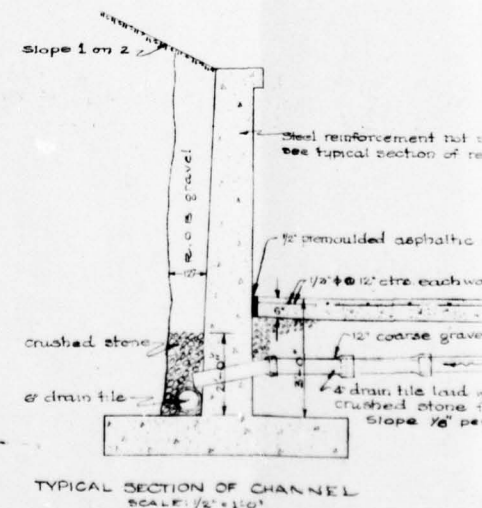 Slope 1 on 2
Steel reinforcement not
see typical section of re
R.O.B gravel
12"
1/2" premoulded asphaltic
@ 12" ctrs. each wa
6"
crushed stone
12" coarse grave
6" drain tile
4" drain tile laid
crushed stone f
Slope 1/8" per
TYPICAL SECTION OF CHANNEL
SCALE: 1/2" = 1'-0"